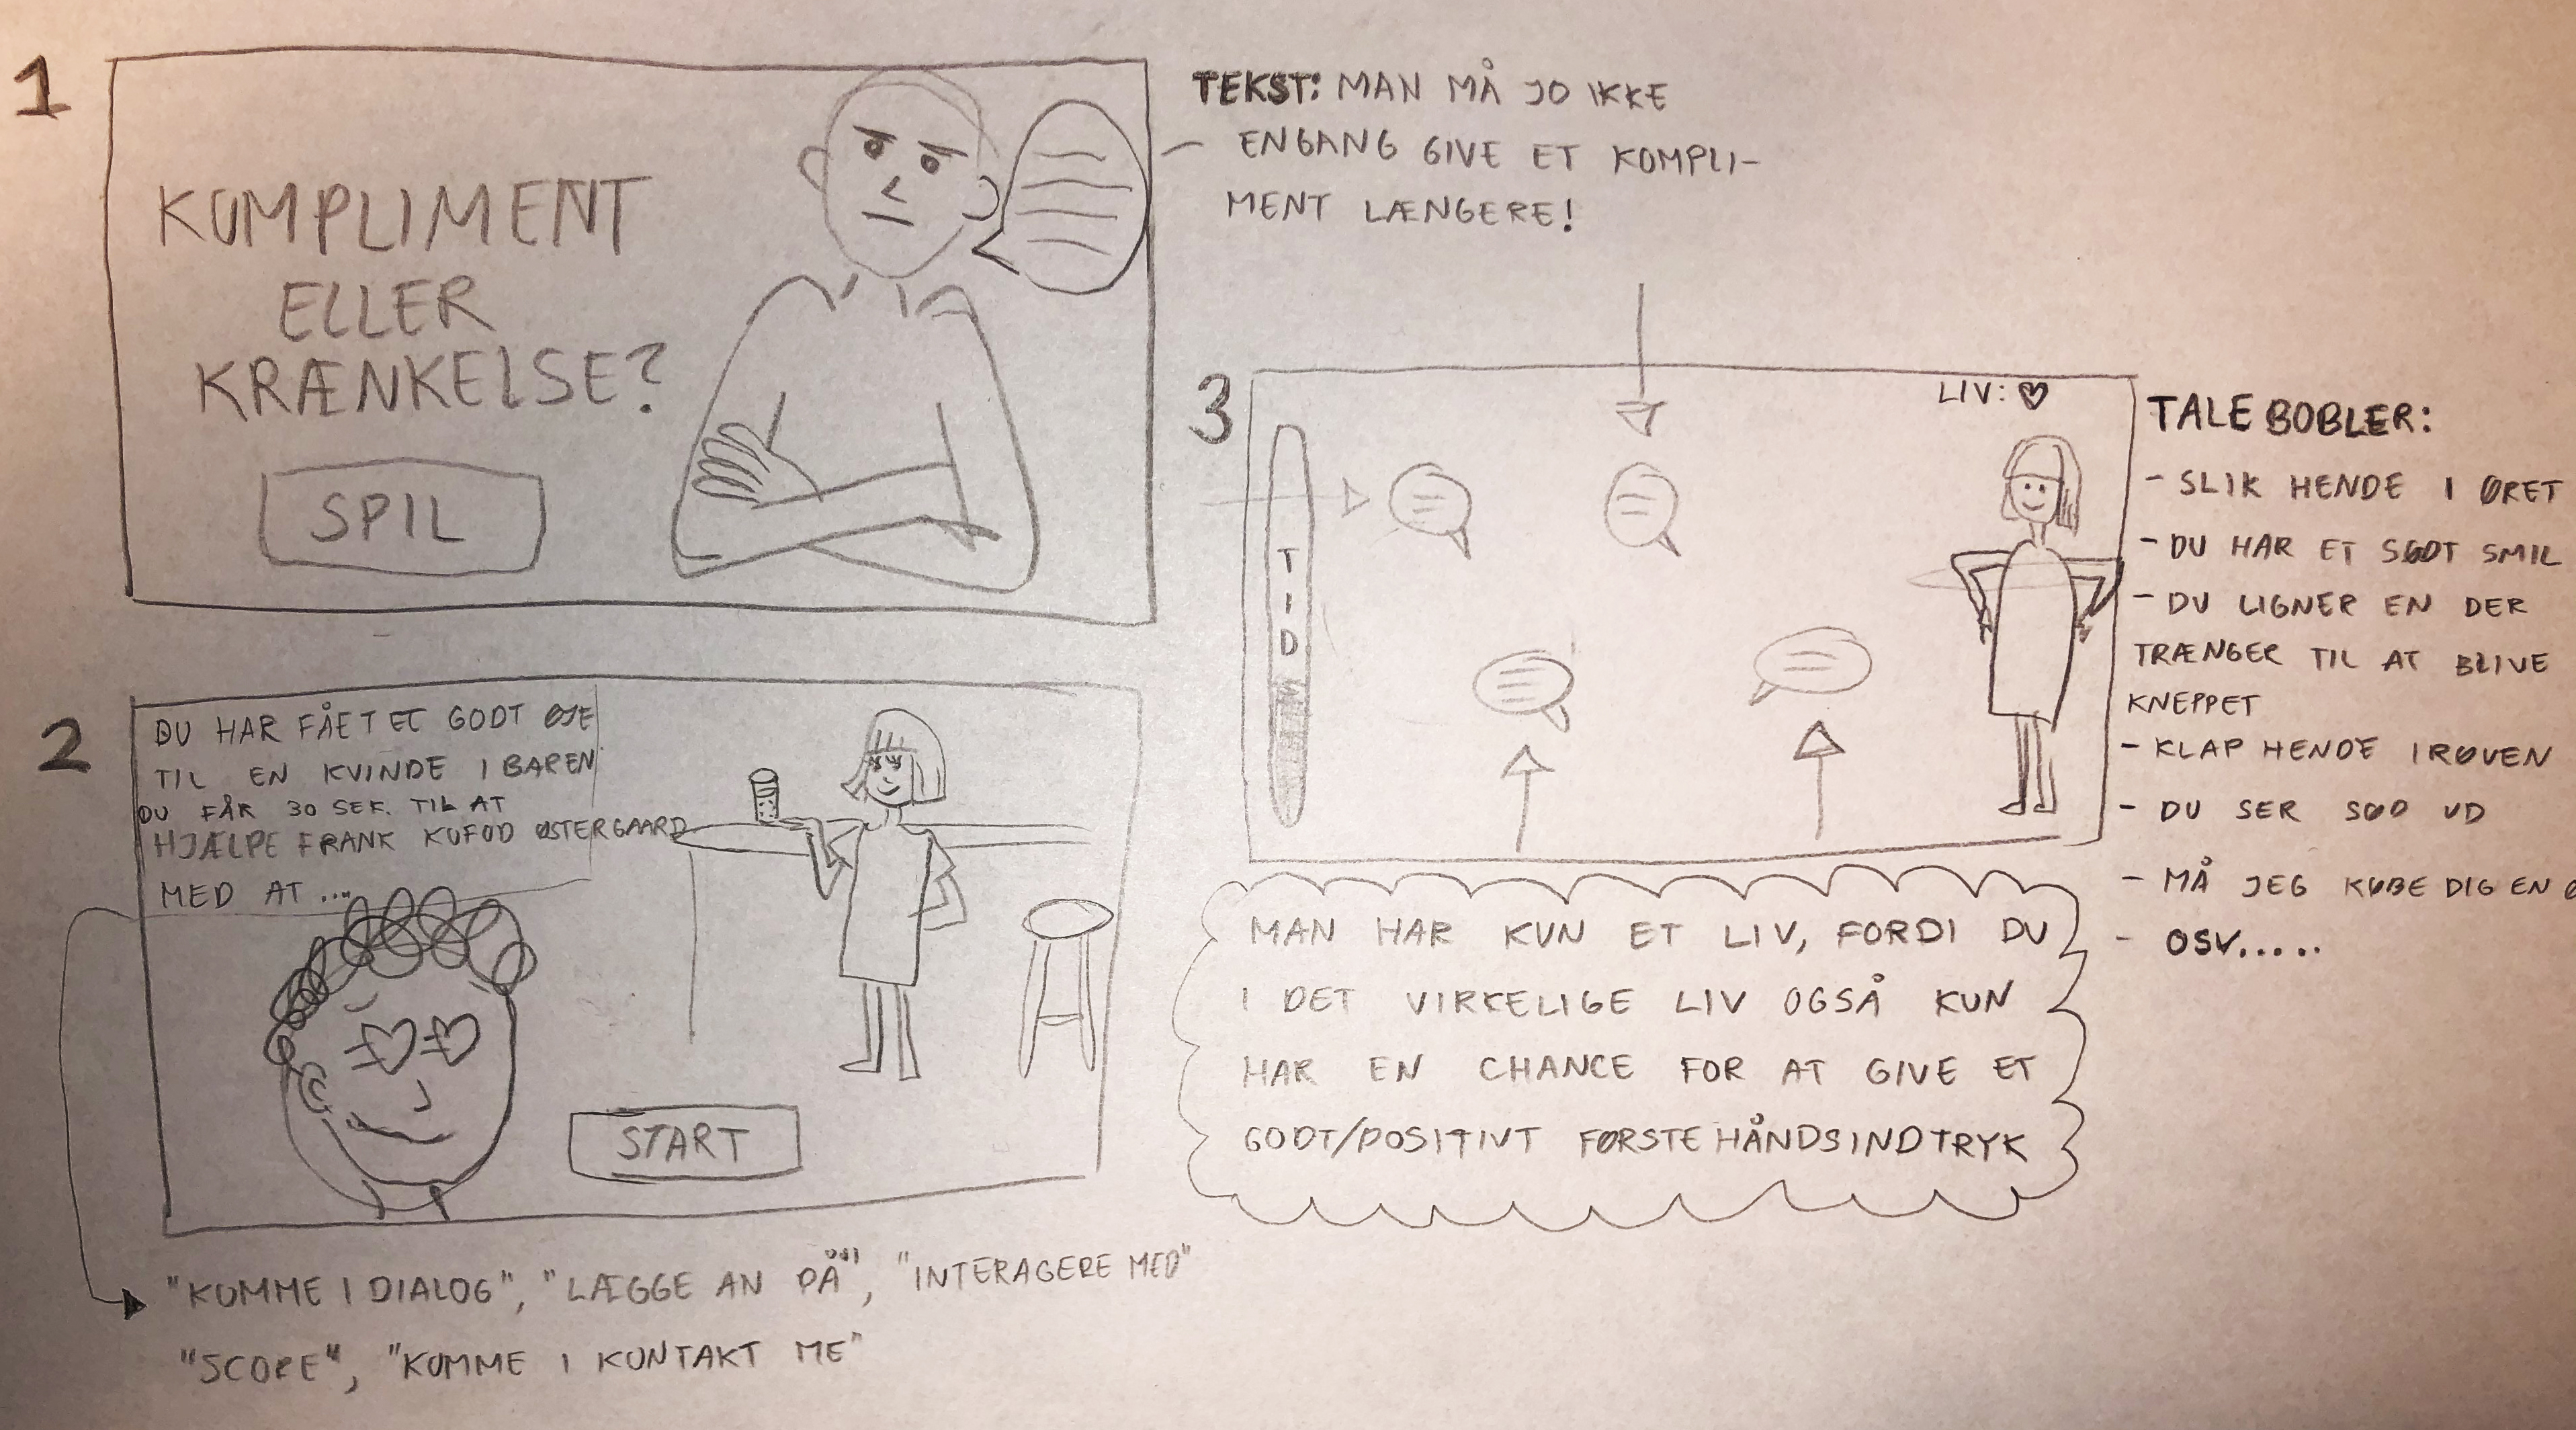 1
KOMPLIMENT
ELLER
KRÆNKELSE?
SPIL
TEKST: MAN MÅ JO IKKE
ENGANG GIVE ET KOMPLI-
MENT LÆNGERE!
2
DU HAR FÅET ET GODT ØJE
TIL EN KVINDE I BAREN
DU FÅR 30 SEK. TIL AT
HJÆLPE FRANK KOFOD ØSTERGAARD
MED AT ...
START
"KOMME I DIALOG", "LÆGGE AN PÅ", "INTERAGERE MED"
"SCORE", "KOMME I KONTAKT ME"
3
LIV: ♡
TID
TALEBOBLER:
- SLIK HENDE I ØRET
- DU HAR ET SØDT SMIL
- DU LIGNER EN DER
TRÆNGER TIL AT BLIVE
KNEPPET
- KLAP HENDE I RØVEN
- DU SER SØD UD
- MÅ JEG KØBE DIG EN
- OSV.....
MAN HAR KUN ET LIV, FORDI DU
I DET VIRKELIGE LIV OGSÅ KUN
HAR EN CHANCE FOR AT GIVE ET
GODT/POSITIVT FØRSTEHÅNDSINDTRYK